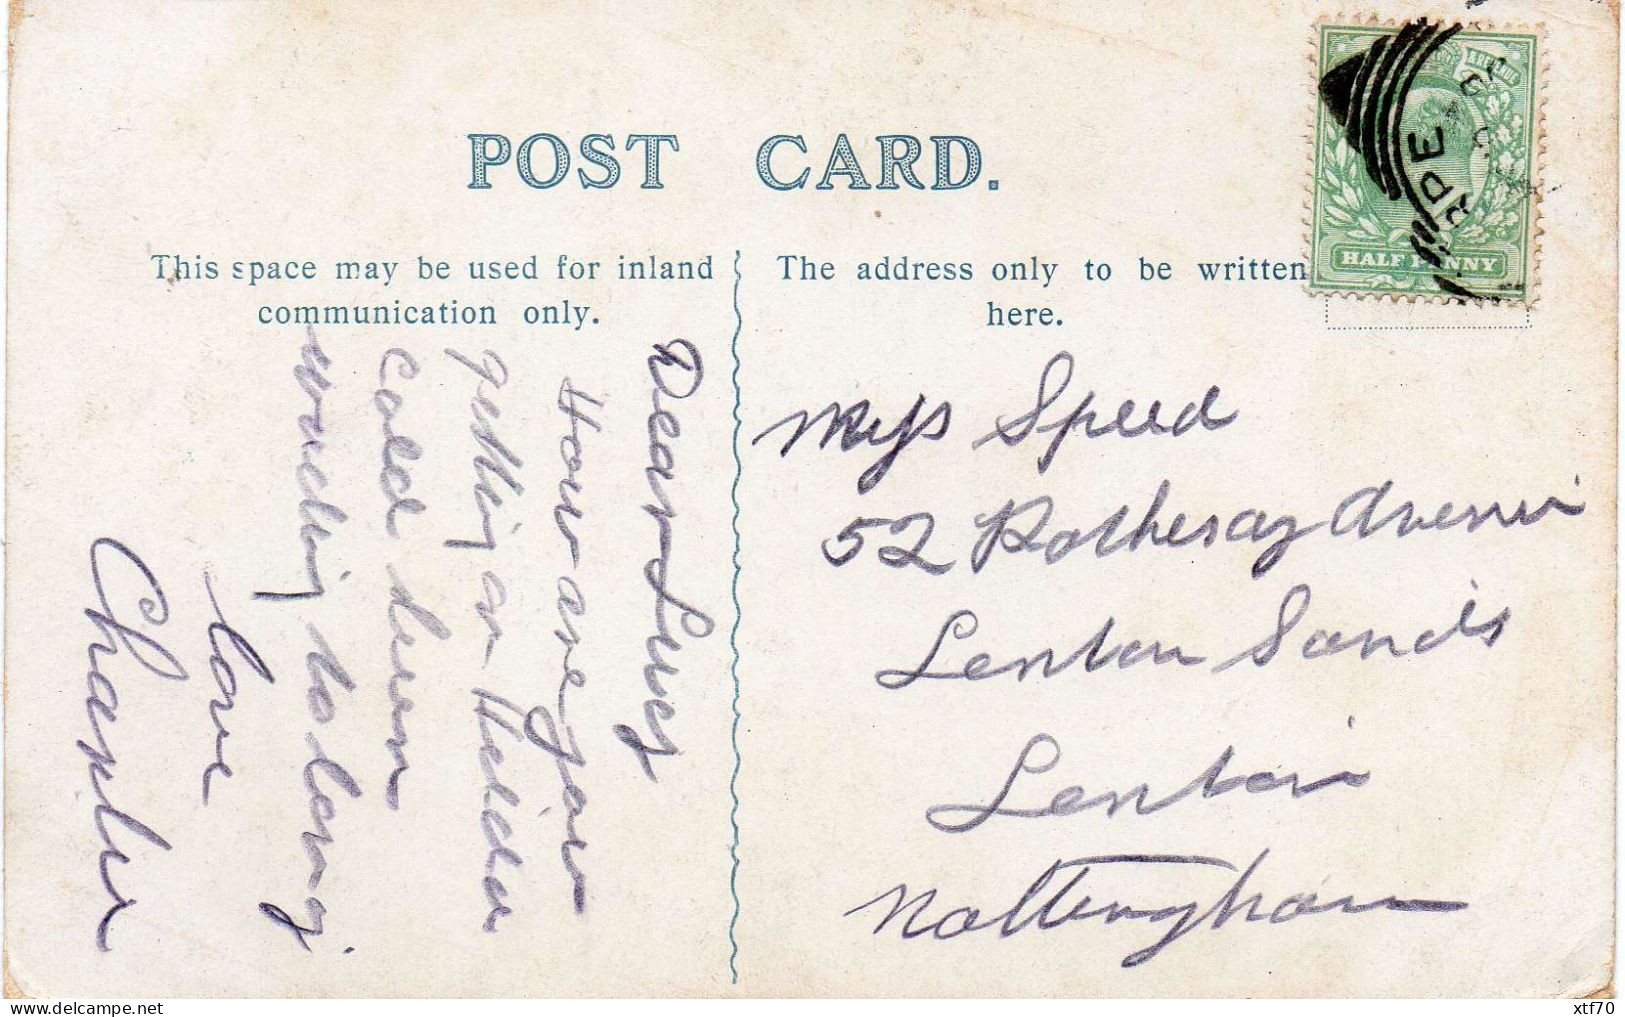 POST CARD.
This space may be used for inland
communication only.
The address only to be written
here.
& REVENUE
HALF PENNY
RPE
Dear Lucy
How are you
getting on
Cold
to day
love
Miss Speed
52 Rothesay Avenue
Lenton Sands
Lenton
Nottingham
www.delcampe.net
xtf70